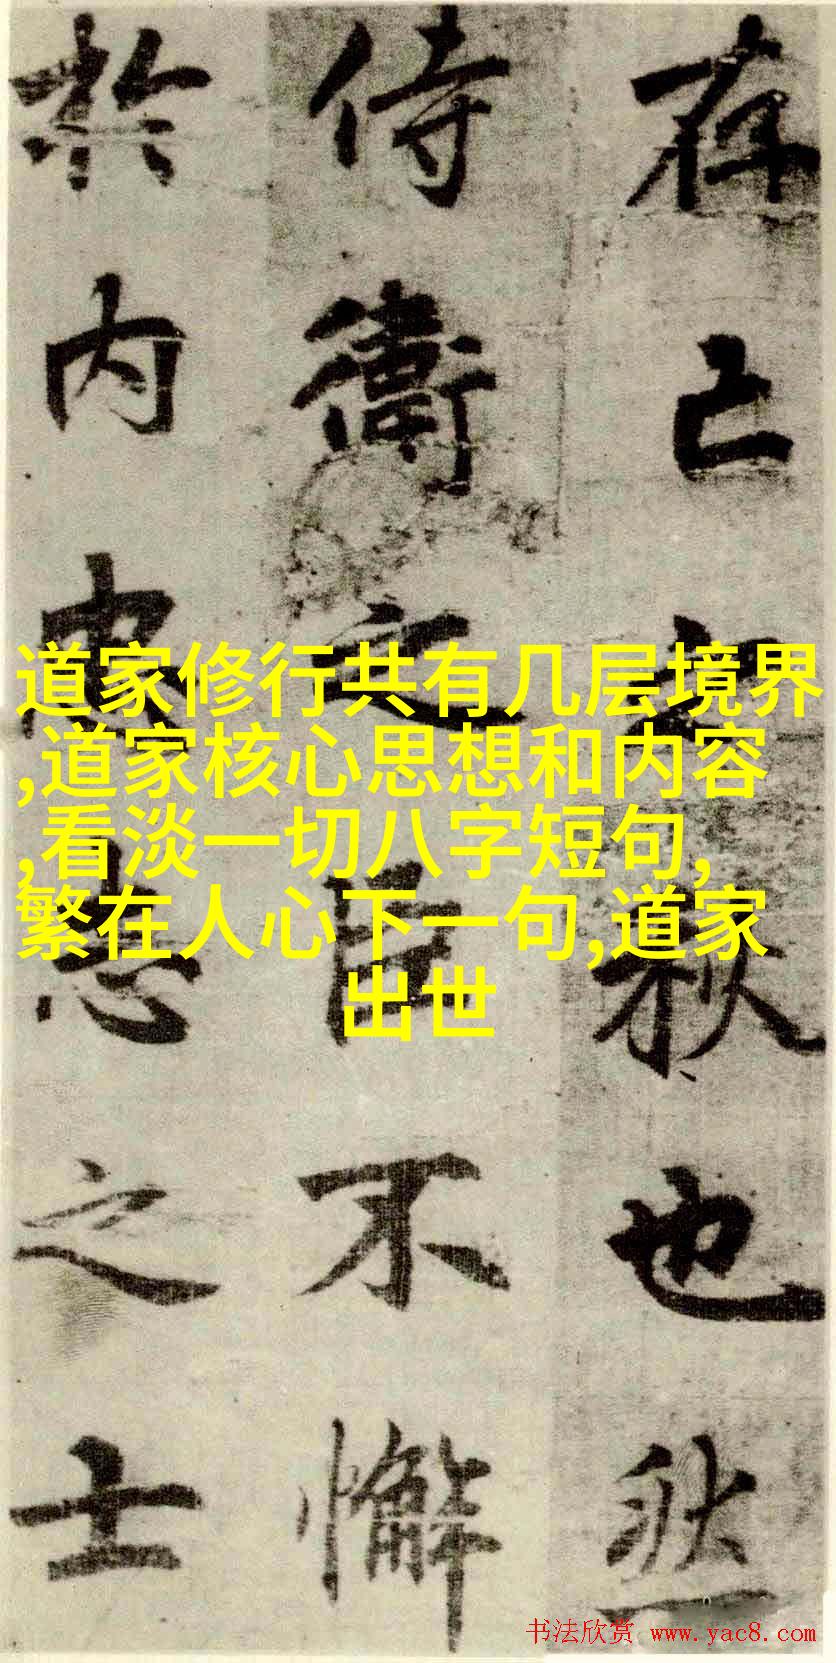 存亡之秋也然
侍衛之臣不懈
於内忠志之士
道家修行共有几层境界
,道家核心思想和内容
,看淡一切八字短句,
繁在人心下一句,道家
出世
书法欣赏 www.yac8.com